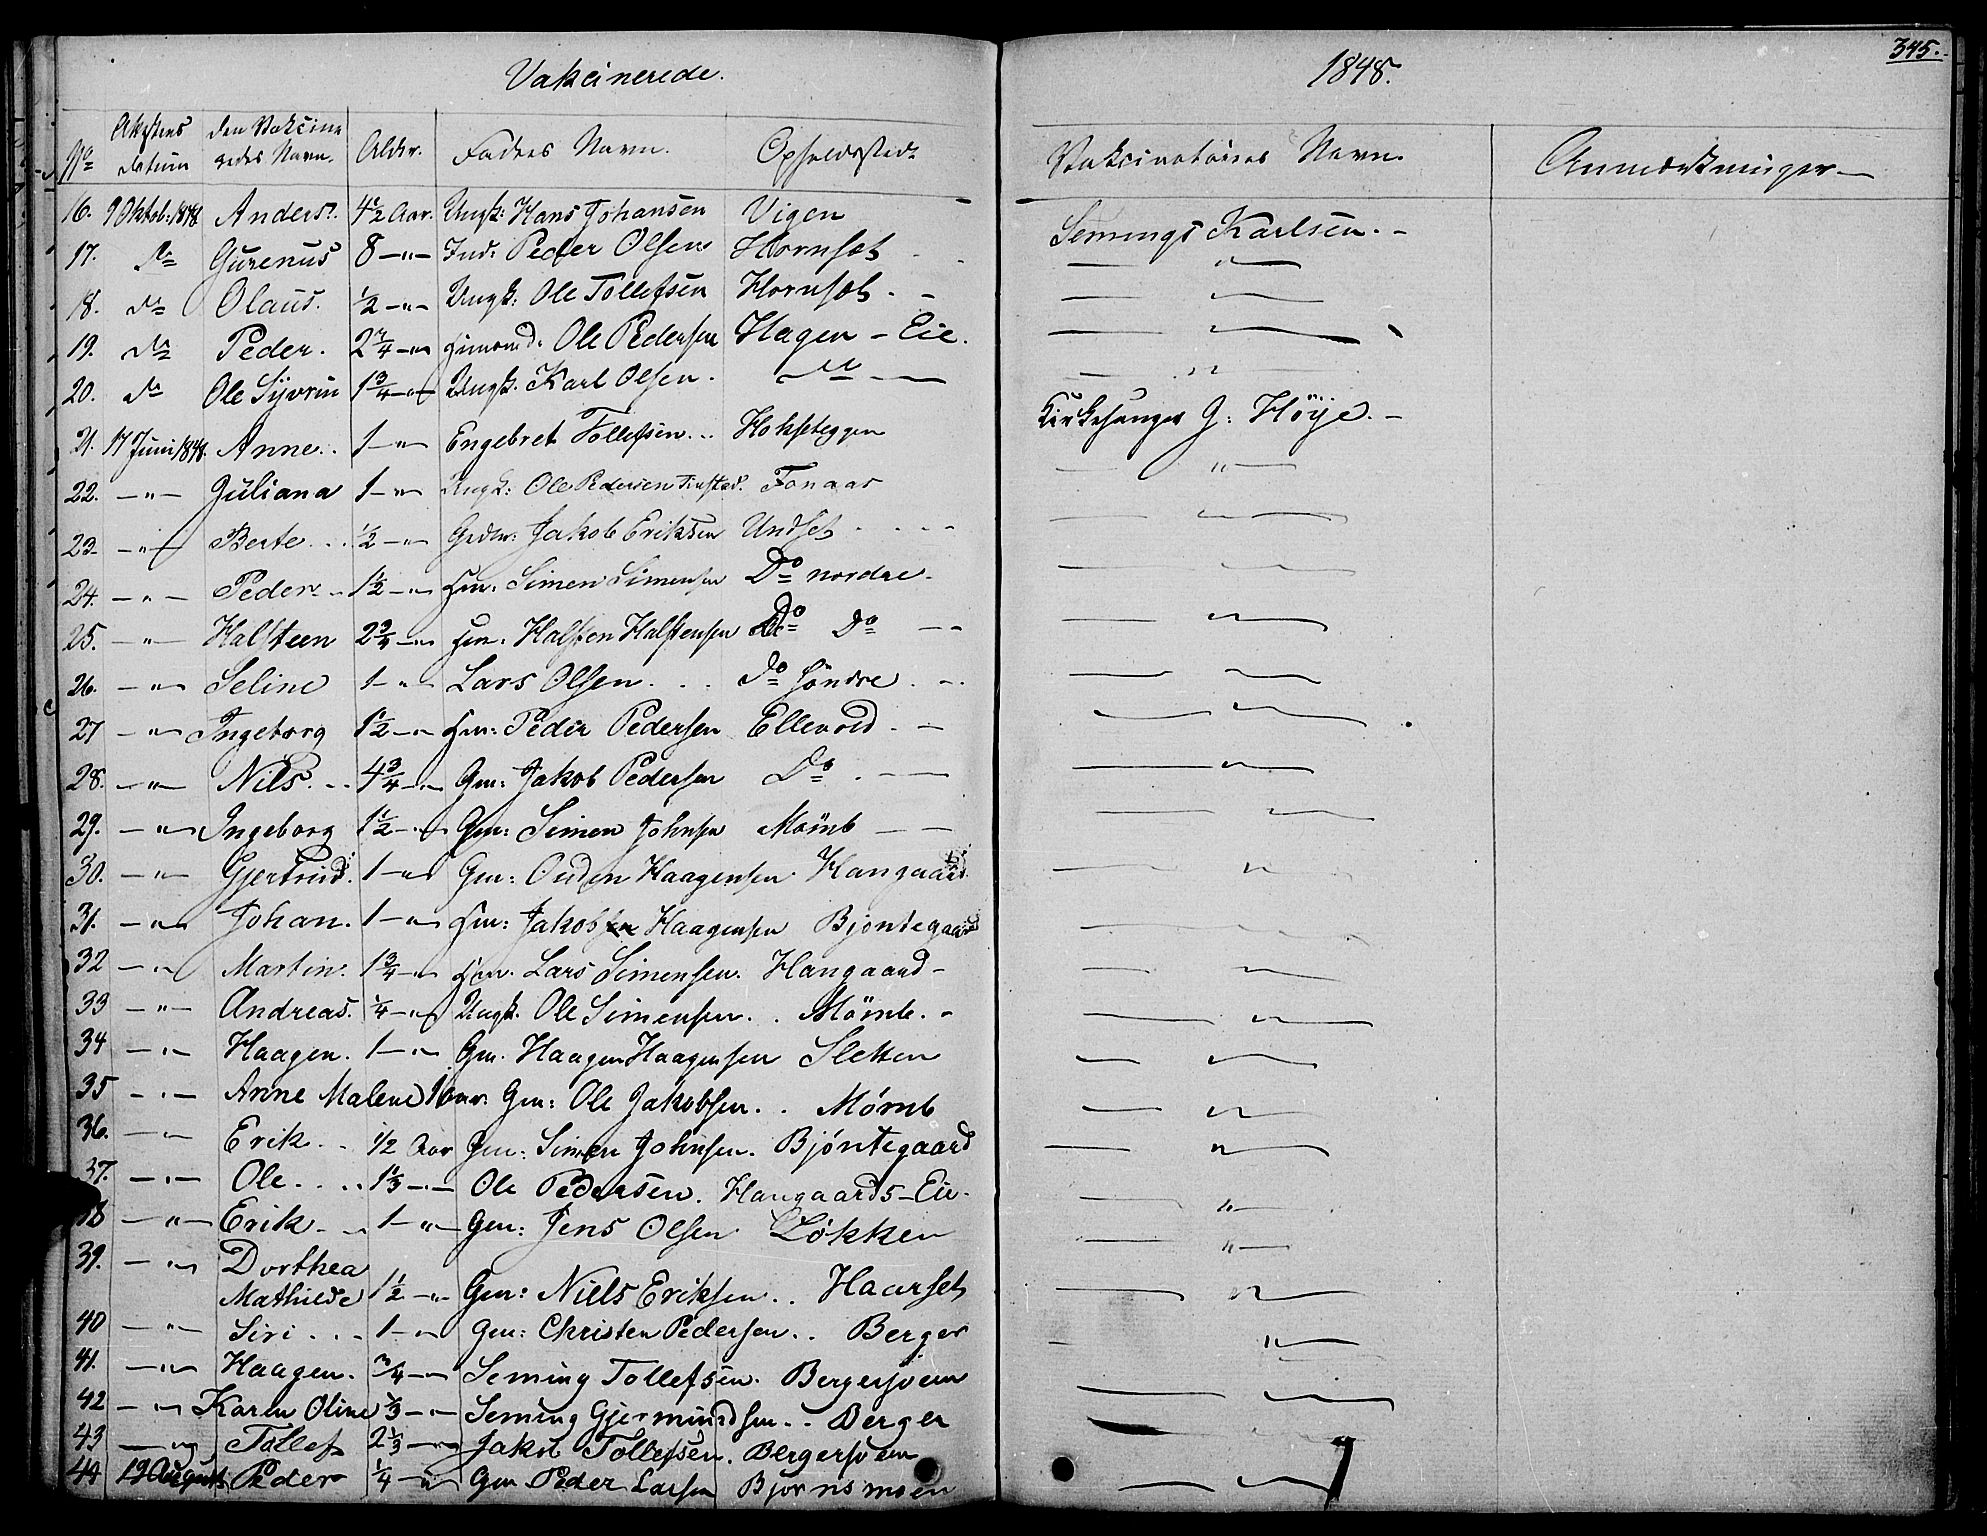 Vakcinerede.
1848.
345.
No Attestens Datum den Vakcineredes Navn. Alder. Faders Navn. Opholdssted. Vakcinatørens Navn. Anmærkninger
16. 9 Oktob: 1848. Anders. 4½ Aar. Ungk: Hans Johansen Vigen Semmings Karlsen.
17. Do Gurenus 8 -"- Ind: Peder Olsen Hornset -"-
18. Do Olaus. ½ -"- Ungk: Ole Tollefsen Hornset. -"-
19. Do Peder. 2¾ -"- Ole Pedersen Hagen - Eie. -"-
20. Do Ole Syvrin 1¾ -"- Ungk. Karl Olsen. Do -"-
21. 17 Juni 1848. Anne. 1 -"- Engebret Tollefsen Hokseteggen Kirkesanger G: Höye.
22. -"- Juliana 1 -"- Ungk: Ole Pedersen Fonaas -"-
23. -"- Berte ½ -"- Jakob Eriksen Undset -"-
24. -"- Peder 1½ -"- Simen Simensen Do nordre -"-
25. -"- Halsteen 2¾ -"- Halsten Halstensen Do Do -"-
26. -"- Seline 1 -"- Lars Olsen Do söndre -"-
27 -"- Ingeborg 1½ -"- Peder Pedersen Ellevold -"-
28. -"- Nils 4¾ -"- Gm: Jakob Pedersen Do -"-
29. -"- Ingeborg 1½ -"- Gm: Simen Johnsen Mömb -"-
30. -"- Gjertrud. 1 -"- Gm: Ouden Haagensen Hangaard -"-
31. -"- Johan. 1 -"- Jakob Haagensen Bjöntegaard -"-
32 -"- Martin. 1¾ -"- Lars Simensen. Hangaard -"-
33 -"- Andreas. ¼ -"- Ungk. Ole Simensen. Mömb. -"-
34 -"- Haagen. 1 -"- Gm. Haagen Haagensen Sletten -"-
35 -"- Anne Malene 1 aar. Gm: Ole Jakobsen. Mömb -"-
36. -"- Erik ½ Aar Gm: Simen Johnsen. Bjöntegaard -"-
37. -"- Ole 1⅓ -"- Ole Pedersen. Hangaards-Eie. -"-
38 -"- Erik 1 -"- Gm: Jens Olsen Løkken -"-
39. -"- Dorthea
Mathilde 1½ -"- Gm: Niels Eriksen Haarset -"-
40 -"- Siri 1 -"- Gm: Christen Pedersen Berger -"-
41. -"- Haagen. ¾ -"- Seming Tollefsen. Bergersoen -"-
42 -"- Karen Oline ⅓ -"- Seming Gjermundsen Berger -"-
43 -"- Tollef 2⅓ -"- Jakob Tollefsen. Bergersoen
44 19 August Peder ¼ -"- Gm Peder Larsen Bjørnsmoen -"-